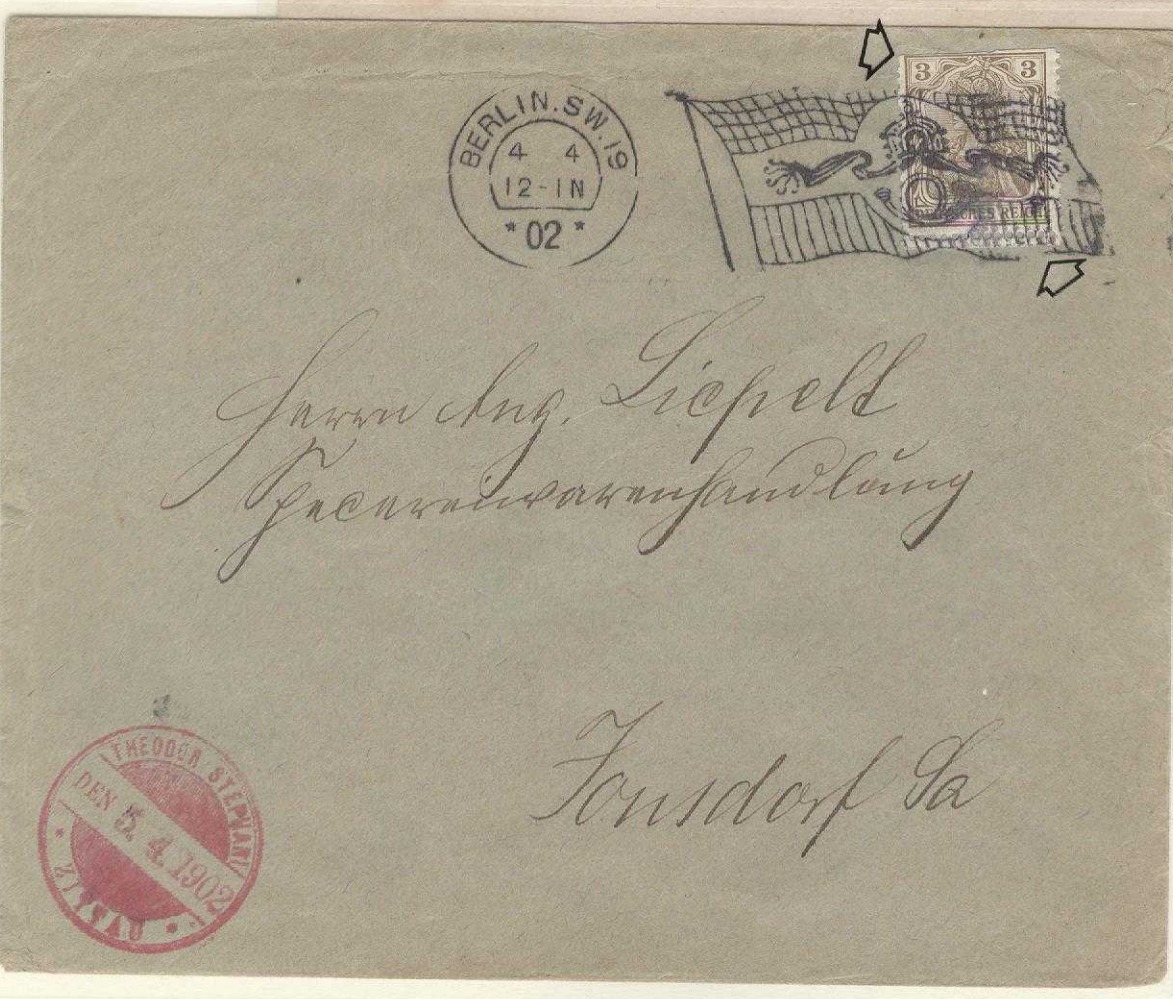 BERLIN.SW.19
4 4
12-1N
*02*
3 3
DEUTSCHES REICH
Herrn Aug. Liepelt
Specereiwarenhandlung
Jonsdorf Sa
THEODOR STEPHAN
DEN 5. 4. 1902
* ZITTAU *